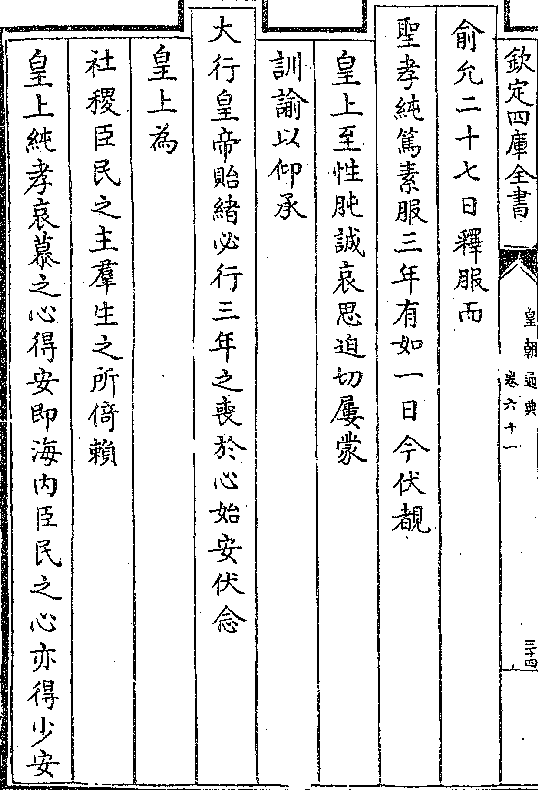 欽定四庫全書
皇朝通典
卷六十一
三十四
俞允二十七日釋服而
聖孝純篤素服三年有如一日今伏覩
皇上至性肫誠哀思迫切屢蒙
訓諭以仰承
大行皇帝貽緒必行三年之喪於心始安伏念
皇上為
社稷臣民之主羣生之所倚賴
皇上純孝哀慕之心得安即海内臣民之心亦得少安